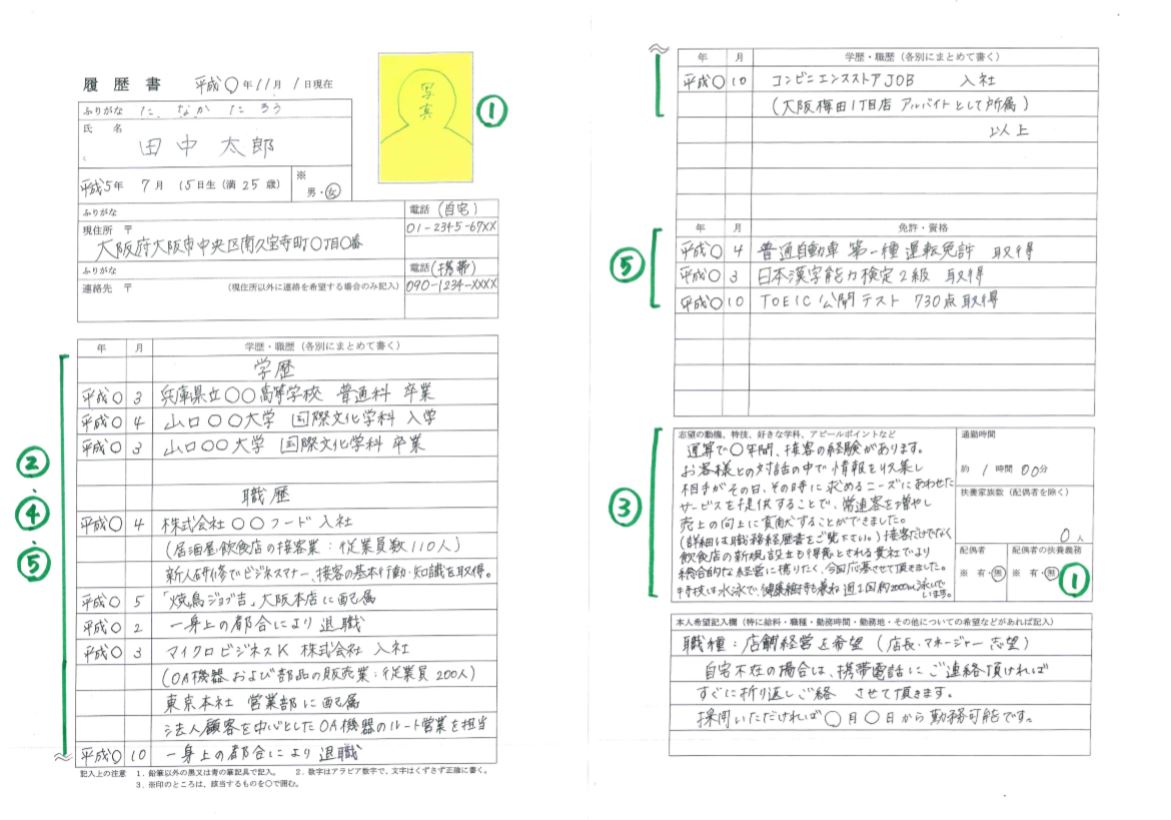 履歴書 平成〇年11月1日現在
写真
①
ふりがな たなか たろう
氏 名
田中 太郎
平成5年 7月 15日生(満25歳)
※
男・女
ふりがな
電話(自宅)
現住所 〒
01-2345-67XX
大阪府大阪市中央区南久宝寺町〇丁目〇番
ふりがな
電話(携帯)
連絡先 〒 (現住所以外に連絡を希望する場合のみ記入)
090-1234-XXXX
年 月 学歴・職歴(各別にまとめて書く)
学歴
平成〇 3 兵庫県立〇〇高等学校 普通科 卒業
平成〇 4 山口〇〇大学 国際文化学科 入学
平成〇 3 山口〇〇大学 国際文化学科 卒業
職歴
平成〇 4 株式会社〇〇フード 入社
(居酒屋飲食店の接客業:従業員数110人)
新人研修でビジネスマナー、接客の基本行動・知識を取得。
平成〇 5 「焼鳥ジョブ吉」大阪本店に配属
平成〇 2 一身上の都合により 退職
平成〇 3 マイクロビジネスK 株式会社 入社
(OA機器および部品の販売業:従業員200人)
東京本社 営業部に配属
法人顧客を中心としたOA機器のルート営業を担当
平成〇 10 一身上の都合により 退職
②
・
④
・
⑤
記入上の注意 1.鉛筆以外の黒又は青の筆記具で記入。 2.数字はアラビア数字で、文字はくずさず正確に書く。
3.※印のところは、該当するものを〇で囲む。
年 月 学歴・職歴(各別にまとめて書く)
平成〇 10 コンビニエンスストアJOB 入社
(大阪梅田1丁目店 アルバイトとして所属)
以上
年 月 免許・資格
⑤
平成〇 4 普通自動車 第一種 運転免許 取得
平成〇 3 日本漢字能力検定2級 取得
平成〇 10 TOEIC公開テスト 730点取得
③
志望の動機、特技、好きな学科、アピールポイントなど
通算で〇年間、接客の経験があります。
お客様との対話の中で情報を収集し
相手がその日、その時に求めるニーズにあわせた
サービスを提供することで、常連客を増やし
売上の向上に貢献することができました。
(詳細は職務経歴書をご覧下さい。)接客だけでなく
飲食店の新規設立も得意とされる貴社でより
総合的な経営に携りたく、今回応募させて頂きました。
特技は水泳で、健康維持も兼ね週1回約2000m泳いで
います。
通勤時間
約 1 時間 00分
扶養家族数(配偶者を除く)
0人
配偶者
※ 有・無
配偶者の扶養義務
※ 有・無
①
本人希望記入欄(特に給料・職種・勤務時間・勤務地・その他についての希望などがあれば記入)
職種:店舗経営を希望(店長・マネージャー志望)
自宅不在の場合は、携帯電話にご連絡頂ければ
すぐに折り返しご絡 させて頂きます。
採用いただければ〇月〇日から勤務可能です。